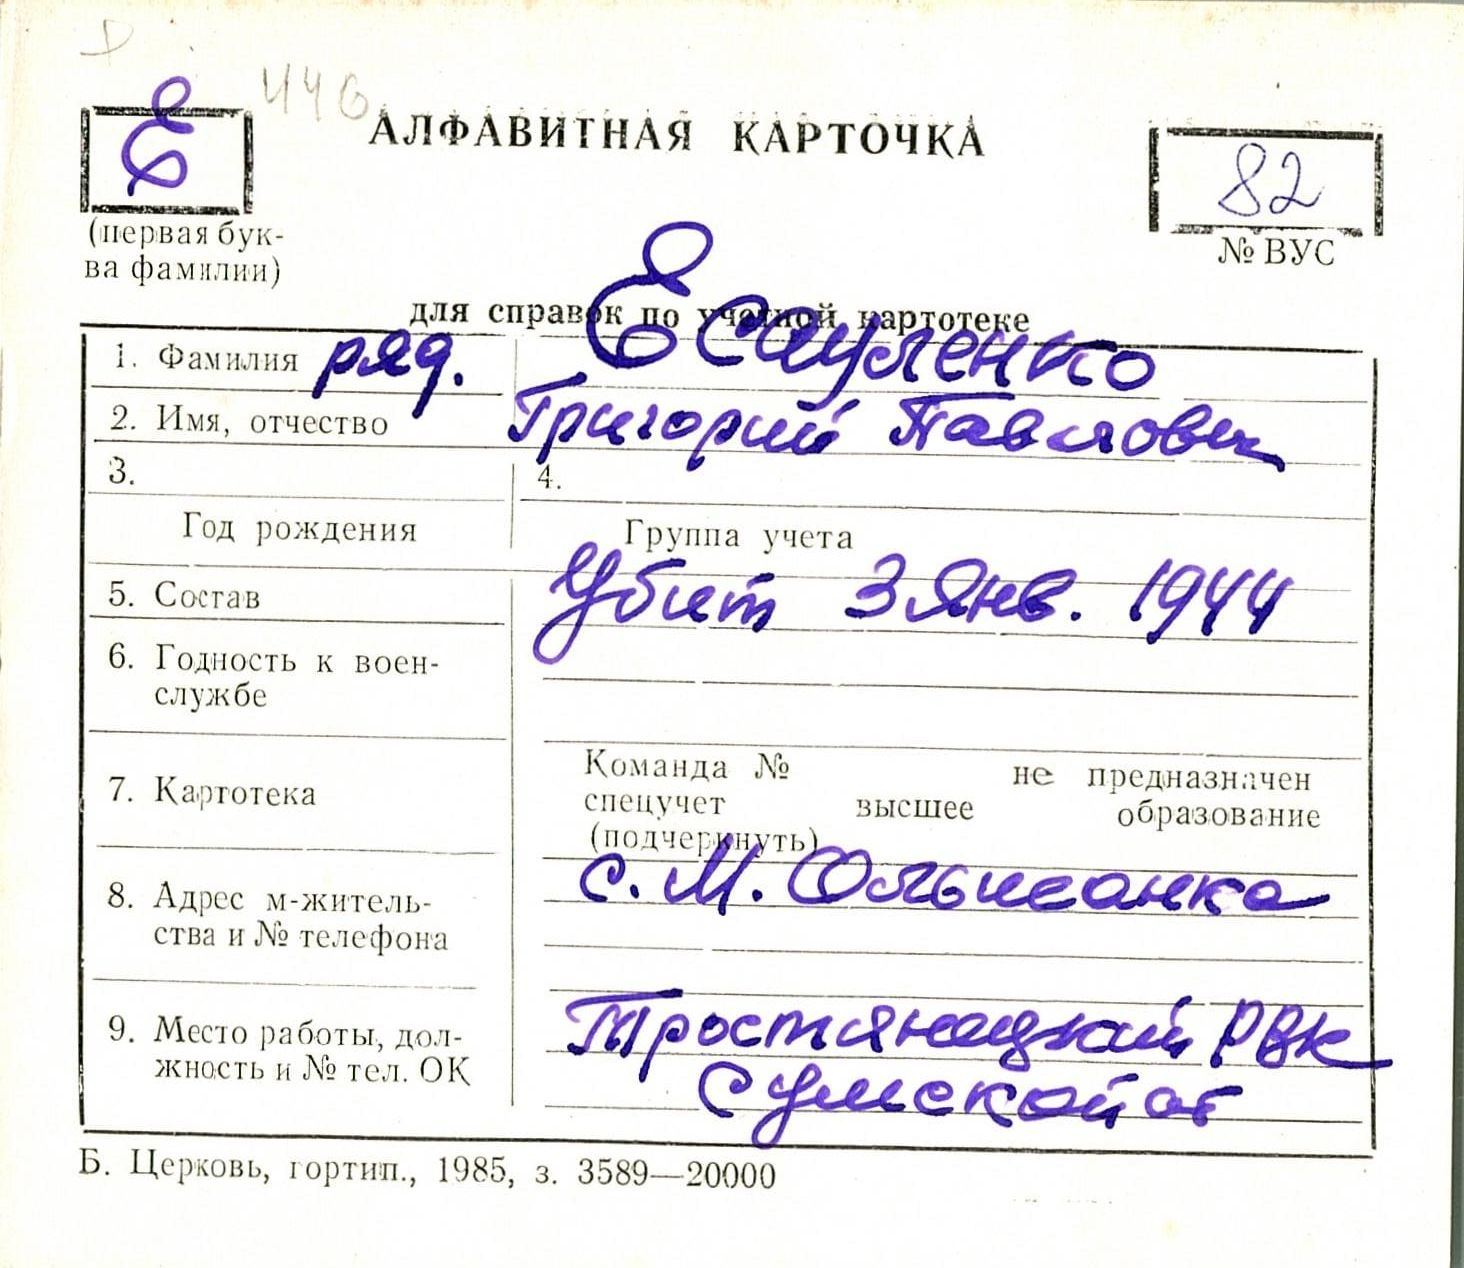 446
Е
АЛФАВИТНАЯ КАРТОЧКА
82
(первая бук-
ва фамилии)
№ ВУС
для справок по учетной картотеке
1. Фамилия ряд. Есауленко
2. Имя, отчество Григорий Павлович
3. 4.
Год рождения Группа учета
5. Состав Убит 3 Янв. 1944
6. Годность к воен-
службе
Команда № не предназначен
7. Картотека спецучет высшее образование
(подчеркнуть)
8. Адрес м-житель- с. М. Ольшанка
ства и № телефона
9. Место работы, дол- Тростянецкий РВК
жность и № тел. ОК Сумской об
Б. Церковь, гортип., 1985, з. 3589—20000